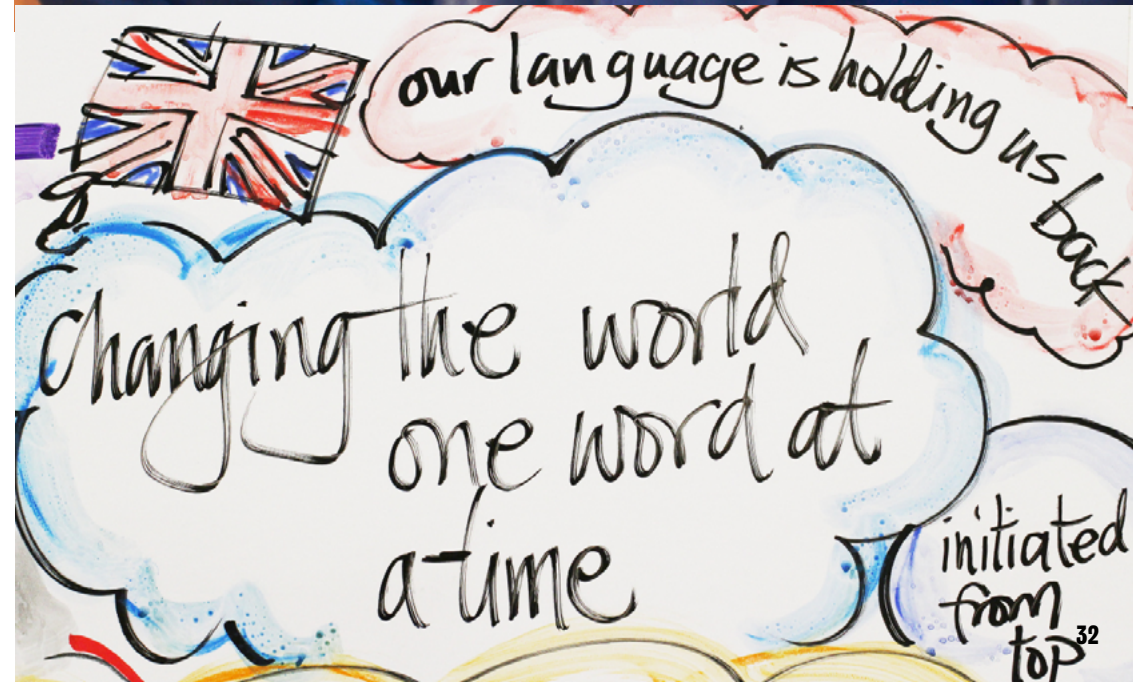 our language is holding us back
Changing the world
one word at
a time
initiated
from
top
32